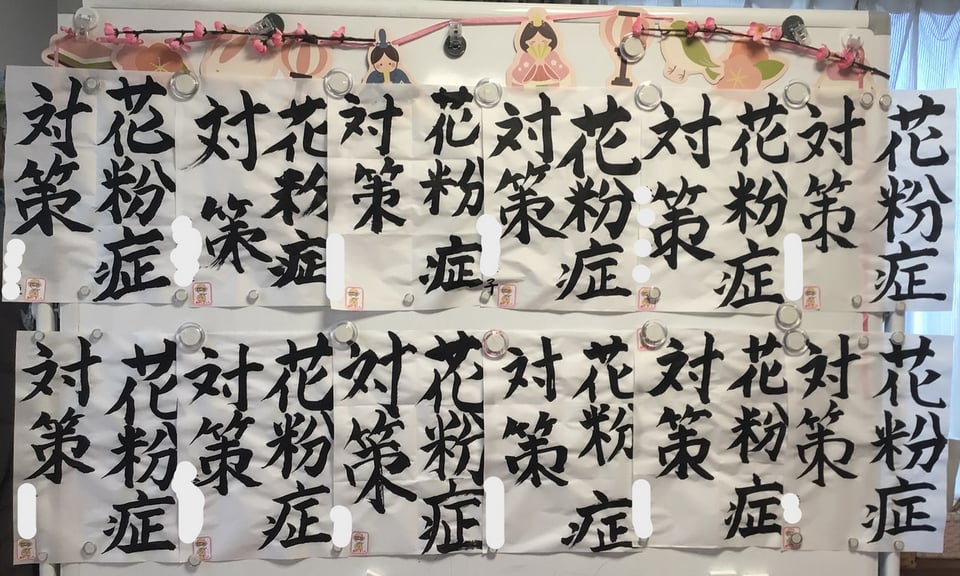 花粉症
対策
花粉症
対策
花粉症
対策
子
花粉症
対策
花粉症
対策
花粉症
対策
花粉症
対策
花粉症
対策
花粉症
対策
花粉症
対策
花粉症
対策
花粉症
対策